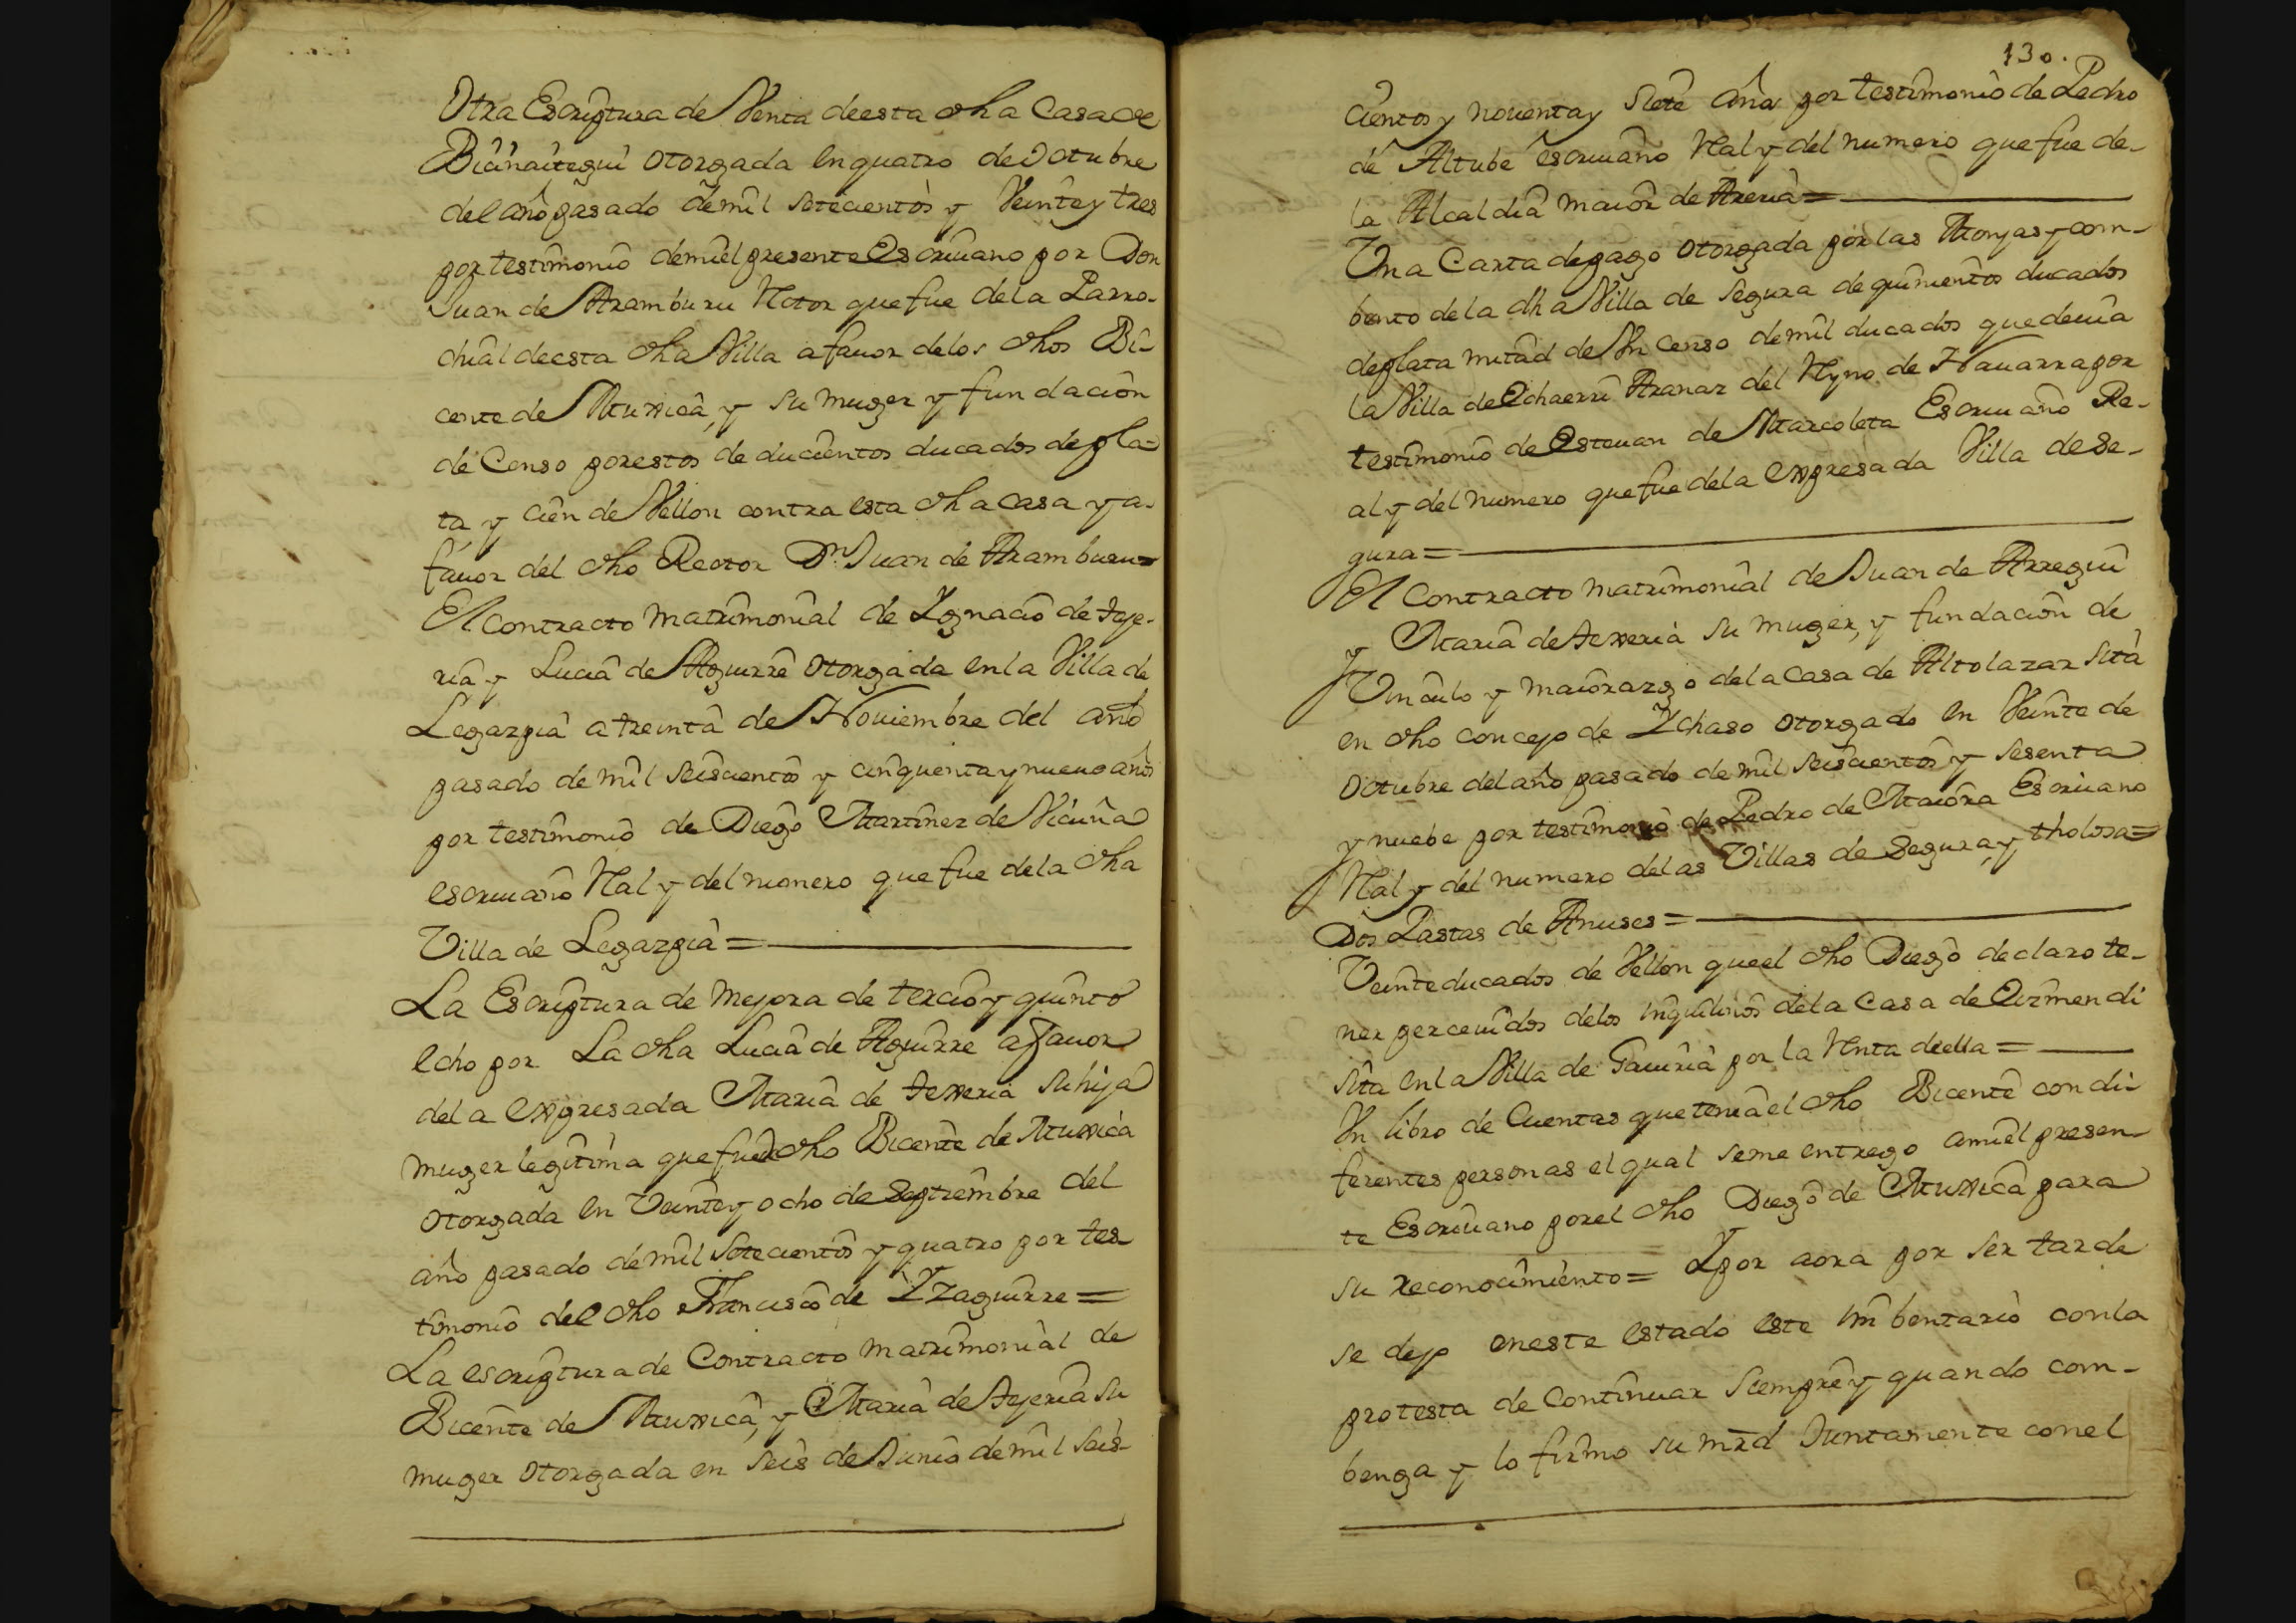 Otra Escriptura de Venta deesta dha Casa de
Biainaitegui otorgada en quatro de Octubre
del año pasado de mil setecientos y Veinte y tres
por testimonio de mi el presente Escriuano por Don
Juan de Aramburu Rector que fue de la Parro-
chial deesta dha Villa a fauor de los dhos Bi-
cente de Muxica, y su muger y fundacion
de Censo por estos de ducientos ducados de pla-
ta y cien de Vellon contra esta dha casa y a-
fauor del dho Rector Dn. Juan de Aramburu=
El contracto matrimonial de Ygnacio de teje-
ria y Lucia de Aguirre otorgada en la Villa de
Legazpia a treinta de Nouiembre del año
pasado de mil seiscientos y cinquenta y nueue años
por testimonio de Diego Martinez de Vicuña
escriuano Rl y del numero que fue de la dha
Villa de Legazpia=
La Escriptura de Mejora de tercio y quinto
echo por La dha Lucia de Aguirre a fauor
de la expresada Maria de texeria su hija
muger legitima que fue dho Bicente de Muxica
otorgada en Veinte y ocho de Septiembre del
año pasado de mil setecientos y quatro por tes-
timonio del dho Francisco de Yzaguirre=
La escriptura de Contracto matrimonial de
Bicente de Muxica, y Maria de tejeria su
muger otorgada en seis de Junio de mil seis-
130.
cientos y nouenta y siete años por testimonio de Pedro
de Altube escriuano Rl y del numero que fue de-
la Alcaldia maior de Areria=
Vna Carta de pago otorgada por las Monjas y com-
bento de la dha Villa de Segura de quinientos ducados
de plata mitad de Vn censo de mil ducados que deuia
la Villa de Echaerri Aranaz del Ryno de Nauarra por
testimonio de Esteuan de Marcoleta Escriuano Re-
al y del numero que fue de la expresada Villa de Se-
gura=
El Contracto matrimonial de Juan de Arregui
y Maria de texeria su muger, y fundacion de
Vinculo y maiorazgo de la casa de Altolazar sita
en dho concejo de Ychaso otorgado en Veinte de
Octubre del año pasado de mil seiscientos y sesenta
y nuebe por testimonio de Pedro de Maiora Escriuano
Rl y del numero de las Villas de Segura, y tholosa=
Dos Pastas de Anuses=
Veinte ducados de Vellon que el dho Diego declaro te-
ner perceuidos de los inquilinos de la Casa de Eizmendi
sita en la Villa de Gauiria por la Renta de ella=
Vn libro de Cuentas que tenia el dho Bicente con di-
ferentes personas el qual se me entrego a mi el presen-
te Escriuano por el dho Diego de Muxica para
su reconocimiento= Y por aora por ser tarde
se dejo en este estado este imbentario con la
protesta de Continuar siempre y quando com-
benga y lo firmo su mrd Juntamente con el